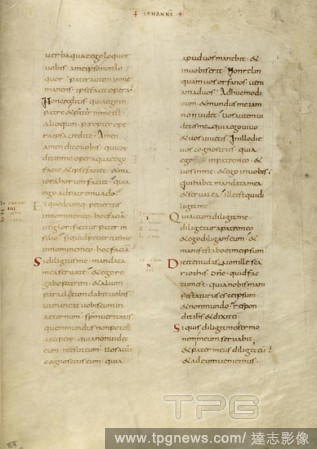 IOHANNE
uerba quae ego loquor
uobis ameipso nonlo
quor · pater autem inme
manens · ipse facit opera
Noncreditis quia ego in
patre & pater inme est
alioquin propter ope
ra ipsa credite · Amen
amen dico uobis · qui cre
dit inme opera quae ego
facio & ipse faciet · & ma
iora horum faciet · quia
ego adpatrem uado
Et quodcumq; petieritis
innomine meo · hoc faciam
ut glorificetur pater in
filio · siquid petieritis me
innomine meo · hoc faciam
Si diligitis me · mandata
mea seruate · & ego ro
gabo patrem · & alium
paraclitum dabit uobis
ut maneat uobiscum in
aeternum · spm ueritatis
quem mundus nonpotest
accipere · quia nonuidet
eum nec scit eum · Uos autē
cognoscitis eum · quia
apud uos manebit &
inuobis erit · Nonrelin
quam uos orfanos · ueni
am aduos · Adhuc modi
cum & mundus me iam
nonuidet · uos autem ui
detis me · quia ego uiuo
& uos uiuetis · Inillo die
uos cognoscetis quia
ego sum inpatre meo · &
uos inme · & ego inuobis
Qui habet mandata mea
& seruat ea · ille est qui di
ligit me
Qui autem diligit me
diligetur apatre meo
& ego diligam eum · &
manifestabo ei meipsum
Dicit ei iudas · non ille sca
riothis · dñe · quid fac
tum est · quia nobis mani
festaturus es teipsum
& non mundo · Respon
dit ihs & dixit ei
Si quis diligit me sermo
nem meum seruabit
& pater meus diliget eū
& adeum ueniemus
TPG
www.tpgnews.com/ 達志影像